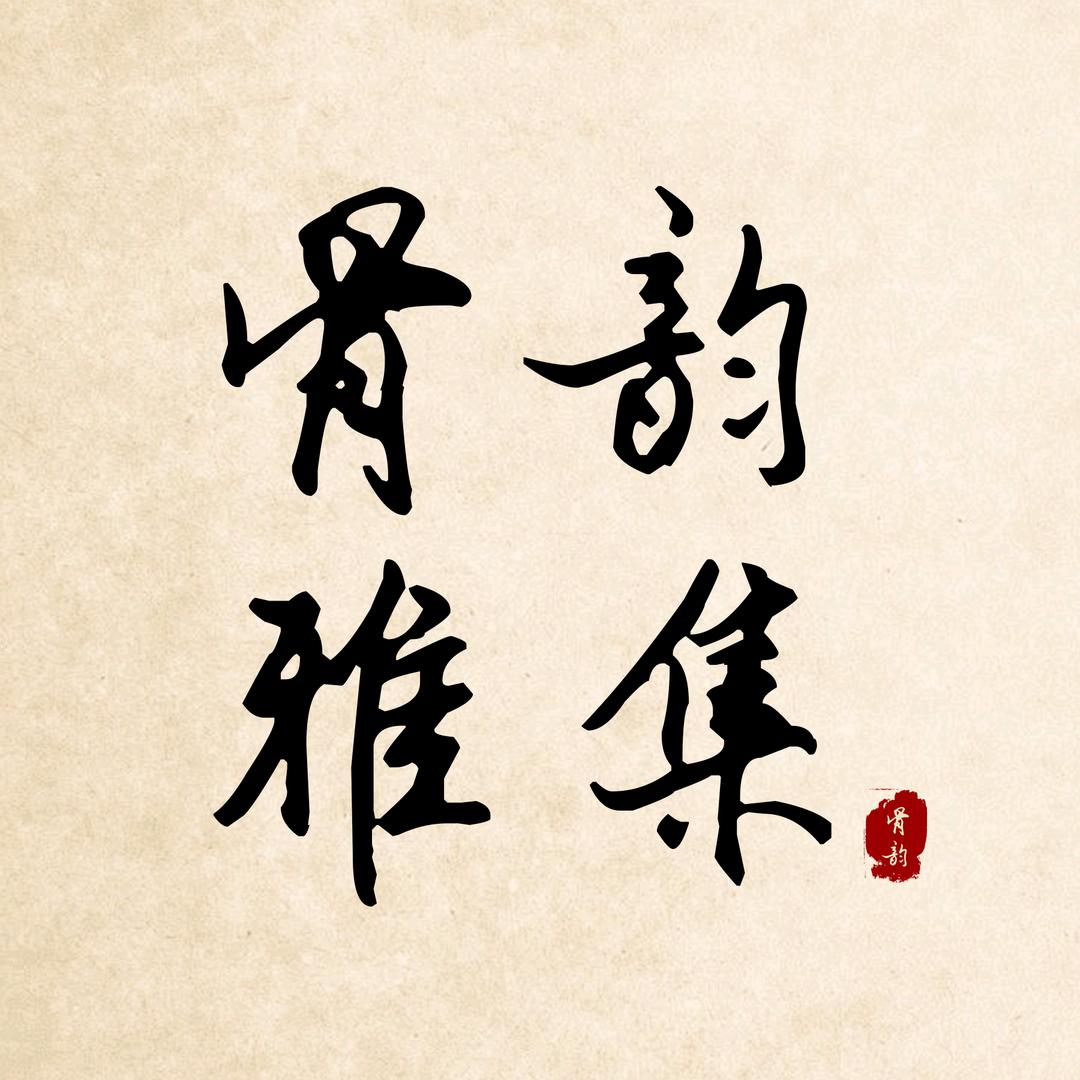 骨韵
雅集
骨
韵